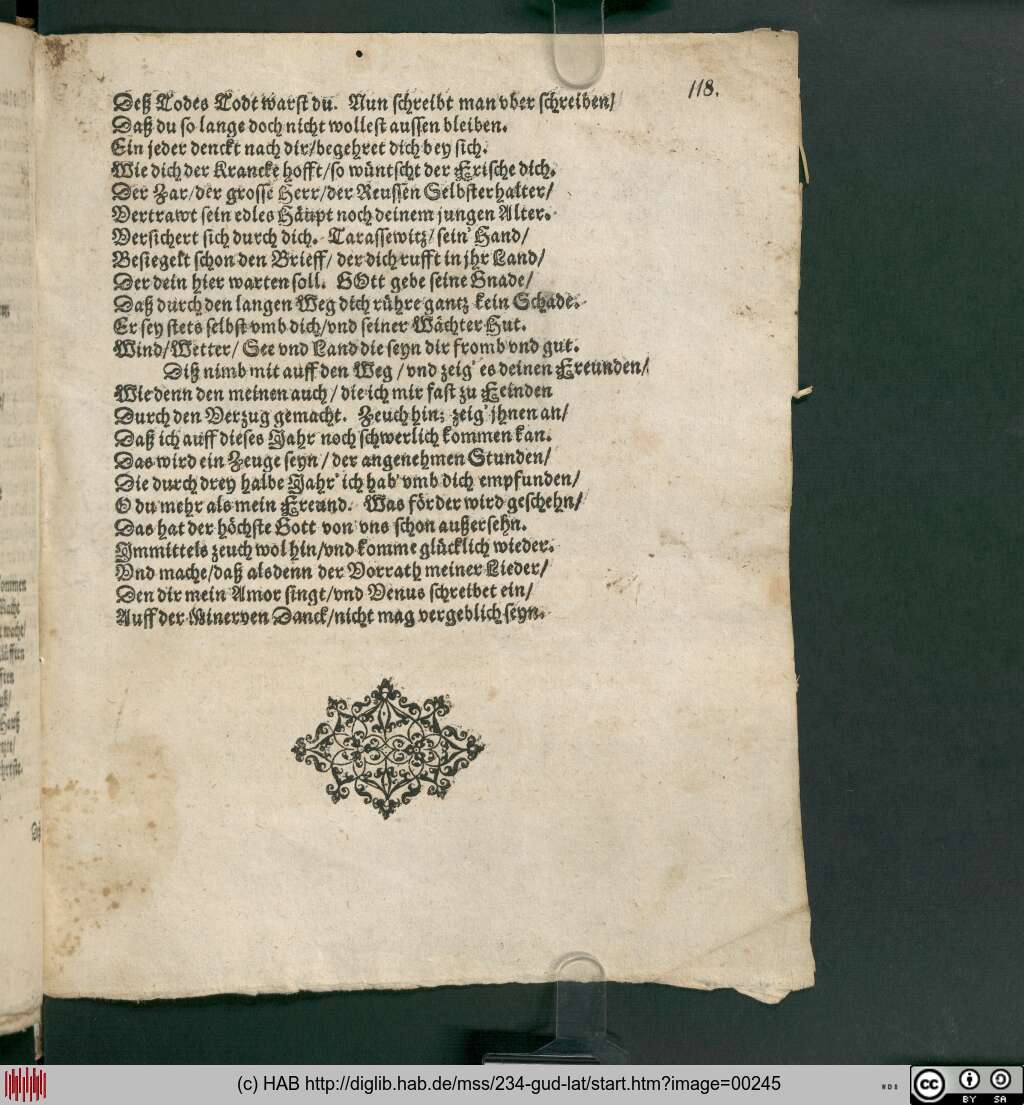 118.
Deß Todes Todt warst du. Nun schreibt man vber schreiben/
Daß du so lange doch nicht wollest aussen bleiben.
Ein jeder denckt nach dir/begehret dich bey sich.
Wie dich der Krancke hofft/so wüntscht der Frische dich.
Der Zar/der grosse Herr/der Reussen Selbsterhalter/
Vertrawt sein edles Häupt noch deinem jungen Alter.
Versichert sich durch dich. Tarassewitz/sein' Hand/
Besiegelt schon den Brieff/ der dich rufft in jhr Land/
Der dein hier warten soll. GOtt gebe seine Gnade/
Daß durch den langen Weg dich rühre gantz kein Schade.
Er sey stets selbst vmb dich/vnd seiner Wächter Hut.
Wind/Wetter/ See vnd Land die seyn dir fromb vnd gut.
Diß nimb mit auff den Weg / vnd zeig' es deinen Freunden/
Wie denn den meinen auch / die ich mir fast zu Feinden
Durch den Verzug gemacht. Zeuch hin; zeig' jhnen an/
Daß ich auff dieses Jahr noch schwerlich kommen kan.
Das wird ein Zeuge seyn / der angenehmen Stunden/
Die durch drey halbe Jahr' ich hab' vmb dich empfunden/
O du mehr als mein Freund. Was förder wird geschehn/
Das hat der höchste Gott von vns schon außersehn.
Immittels zeuch wol hin/vnd komme glücklich wieder.
Vnd mache/daß alsdenn der Vorrath meiner Lieder/
Den dir mein Amor singt/vnd Venus schreibet ein/
Auff der Minerven Danck/nicht mag vergeblich seyn.
(c) HAB http://diglib.hab.de/mss/234-gud-lat/start.htm?image=00245
WDB
cc
BY SA